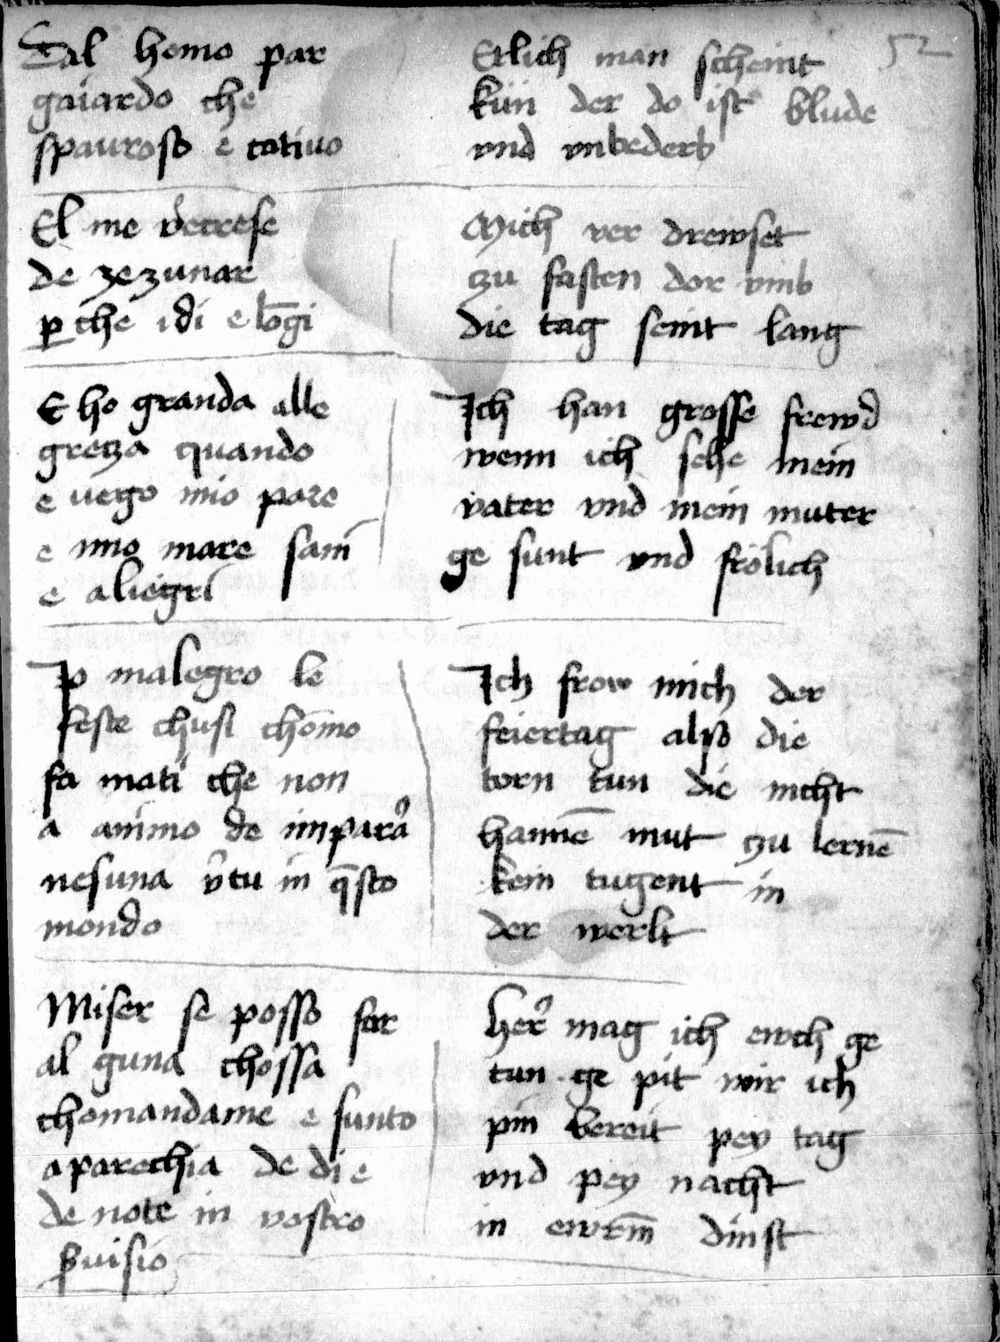 Tal homo par
gaiardo che
spauroso e catiuo
El me v̉crese
de zezunar
ꝑche i di e lōgi
E ho granda alle
greza quando
e uezo mio pare
e mio mare sani
e aliegri
Io malegro le
feste chusi chōmo
fa mati che non
a animo de imparar̉
nesuna v̉tu in q̄sto
mondo
Miser se posso far
al guna chossa
chomandame e sunto
aparechia de di e
de note in vostro
ẜuisio
52
Etlich man scheint
kün der do ist blude
vnd vnbederb
Mich ver drewset
zu fasten dor vmb
die tag seint lang
Ich han grosse frewd̉
wenn ich sehe mein
vater vnd mein muter
ge sunt vnd frölich
Ich frow mich der
feiertag alß die
torn tun die nicht
hannē mut zu lernē
kein tugent in
der werlt
Her̉ mag ich ewch ge
tun ge pit mir ich
pin bereit pey tag
vnd pey nacht
in ewrm̄ dinst